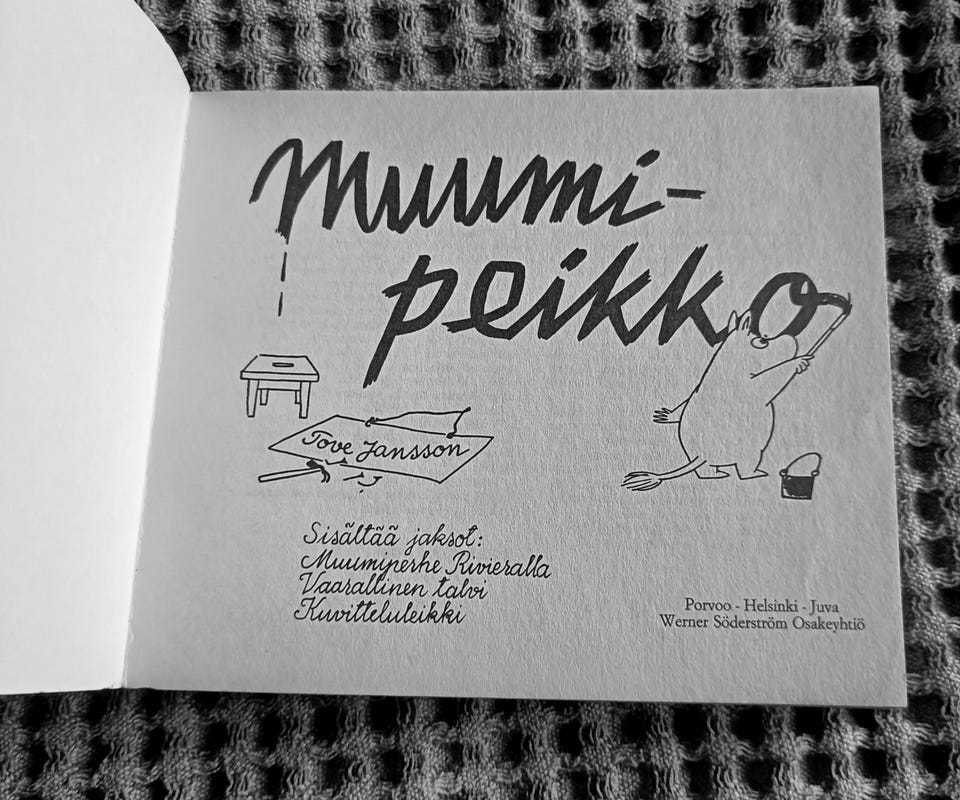 Muumi-
peikko
Tove Jansson
Sisältää jaksot:
Muumiperhe Rivieralla
Vaarallinen talvi
Kuvitteluleikki
Porvoo - Helsinki - Juva
Werner Söderström Osakeyhtiö